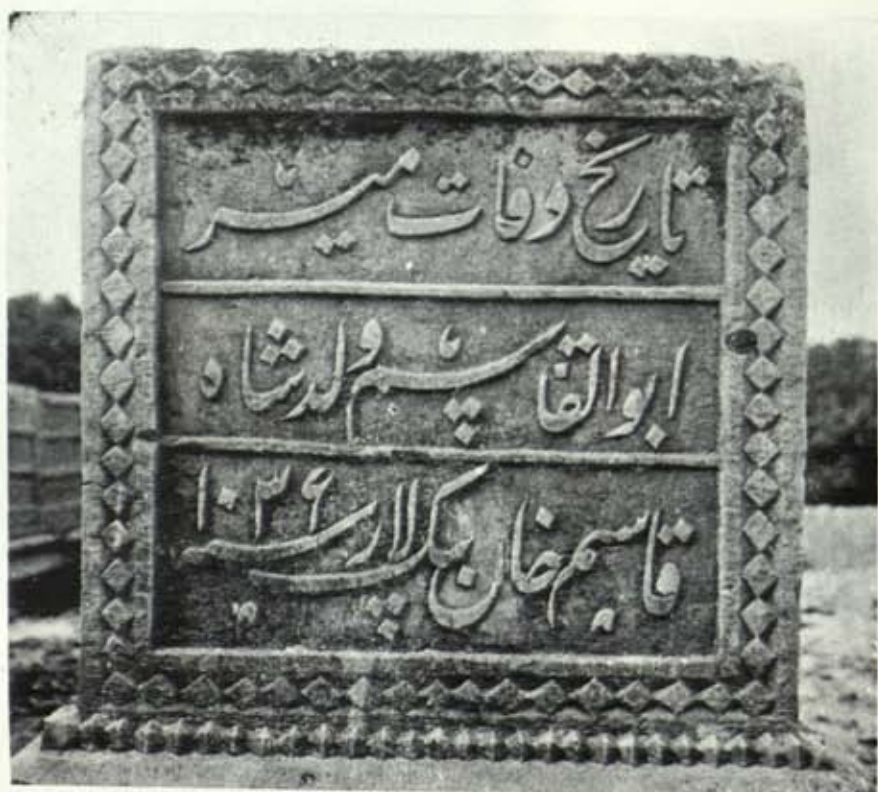 تاریخ وفات میر
ابوالقاسم ولد شاه
قاسم خان بیکلار سنه ۱۰۳۶